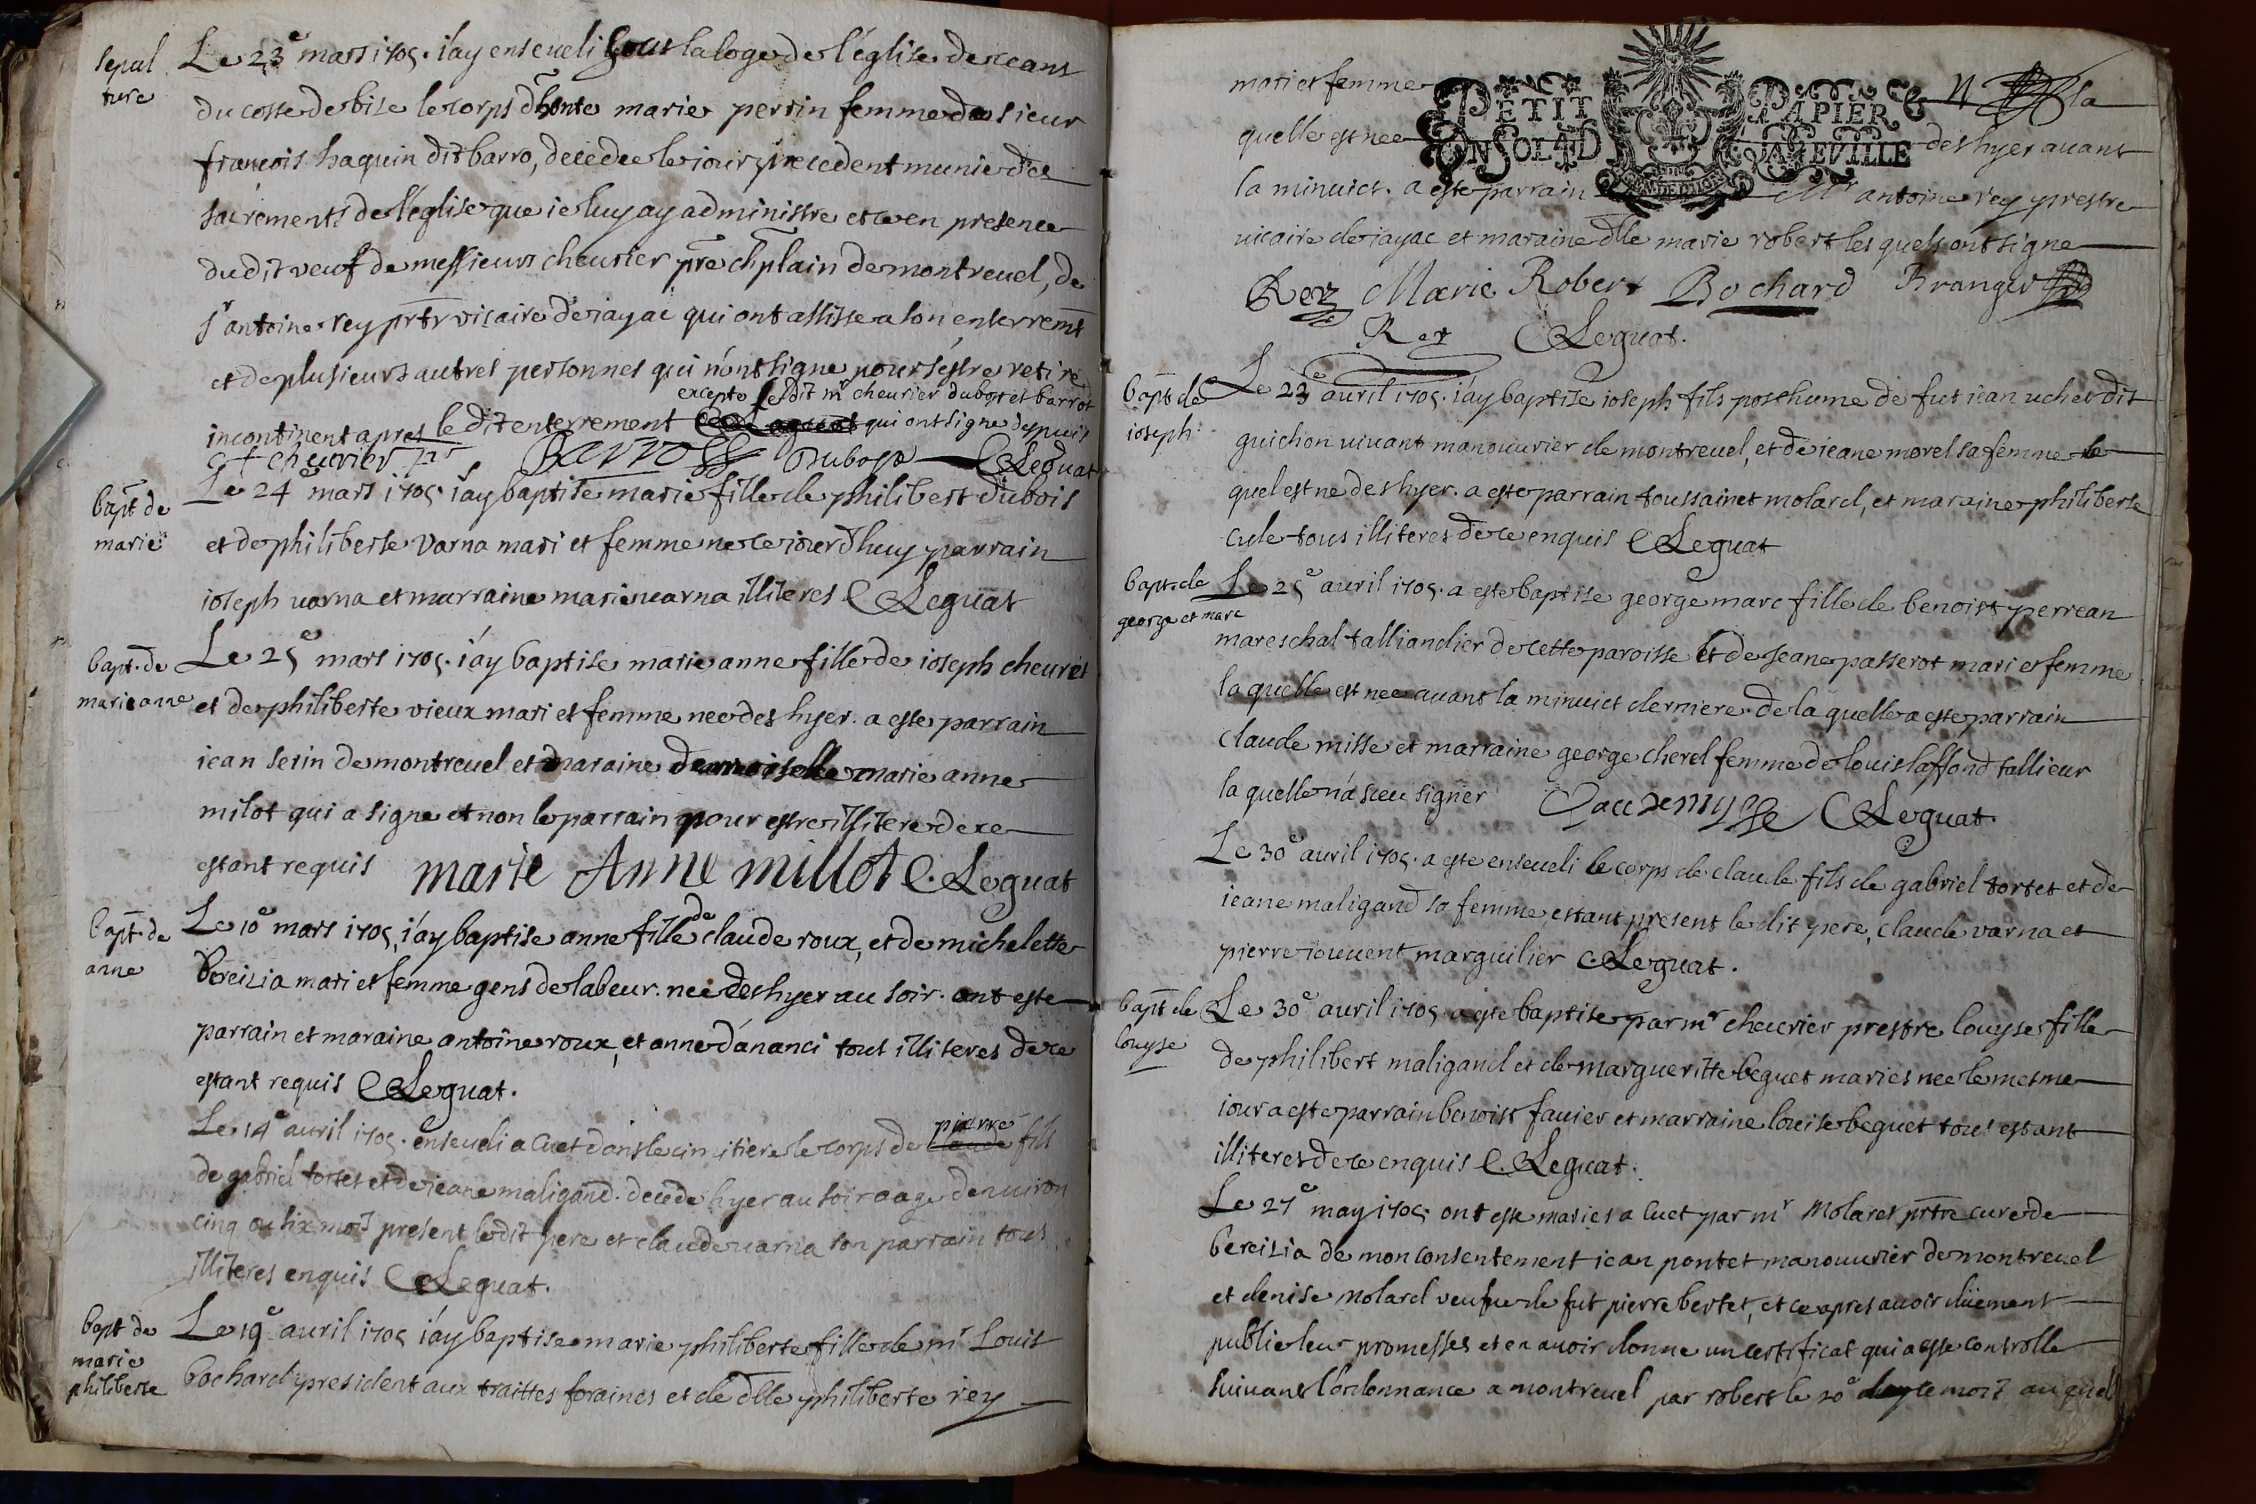 sepul
ture
Le 23e mars 1705. i'ay enseueli sous la loge de l'église de ceans
du costé de bise le corps d'honte marie perrin femme du sieur
francois haquin dit barro, decedee le iour precedent munie des
sacrements de l'église que ie luy ay administre et ce en presence
du dit veuf de messieurs cheurier pre chplain de montreuel, de
sr antoine rey prtr vicaire de iayac qui ont assiste a son enterremt
et de plusieurs autres personnes qui n'ont signe pour s'estre retire
excepte ledit mr cheurier dubost et barrot
incontinent apres le dit enterrement qui ont signe depuis
cheurier ptr Barro Dubost CLeguat
bapt de
marie
Le 24e mars 1705 i'ay baptise marie fille de philibert dubois
et de philiberte Varna mari et femme nee ce iourd'huy parrain
ioseph varna et marraine marie varna illiteres CLeguat
bapt. de
marie anne
Le 25e mars 1705. i'ay baptise marie anne fille de ioseph cheurier
et de philiberte vieux mari et femme nee des hyer. a este parrain
iean serin de montreuel et maraine demoiselle marie anne
milot qui a signe et non le parrain pour estre illitere de ce
estant requis marie Anne millot C. Leguat
bapt. de
anne
Le 10e mars 1705, i'ay baptise anne fille de claude roux, et de michelette
bereizia mari et femme gens de labeur. nee des hyer au soir. ont este
parrain et maraine antoine roux, et anne d'ananci tous illiteres de ce
estant requis CLeguat.
Le 14e auril 1705. enseueli a Cuet dans le cimitiere le corps de claude pierre fils
de gabriel tortet et de ieane maligand. decede hyer au soir aage denuiron
cinq ou six mois present ledit pere et claude varna son parrain tous
illiteres enquis CLeguat.
bapt de
marie
philiberte
Le 19e auril 1705 i'ay baptise marie philiberte fille de mr Louis
bochard president aux traittes foraines et de dlle philiberte rey
mari et femme la
PETIT PAPIER
UN SOL 4 D LA FEUILLE
quelle est nee des hyer auant
la minuict. a este parrain Mr antoine rey prestre
vicaire de iayac et maraine dlle marie robert les quels ont signe
Rey Marie Robert Bochard Branger
Rey CLeguat.
bapt de
ioseph
Le 23e auril 1705. i'ay baptise ioseph fils posthume de fut iean uche dit
guichon viuant manouurier de montreuel, et de ieane morel sa femme le
quel est ne des hyer. a este parrain toussainct molard, et maraine philiberte
cule tous illiteres de ce enquis CLeguat
bapt. de
george et marc
Le 25e auril 1705. a este baptise george marc fille de benoist perrean
mareschal talliandier de cette paroisse et de Jeane passerot mari et femme
la quelle est nee auant la minuict derniere. de la quelle a este parrain
claude misse et marraine george cherel femme de louis laffond tallieur
la quelle n'a sceu signer Claudemysse CLeguat.
Le 30e auril 1705. a este enseueli le corps de claude fils de gabriel tortet et de
ieane maligand sa femme, estant present le dit pere, claude varna et
pierre iouuent marguilier C. Leguat.
bapt de
louyse
Le 30e auril 1705. a este baptise par mr cheurier prestre louyse fille
de philibert maligand et de margueritte beguet maries nee le mesme
iour a este parrain benoist fauier et marraine louise beguet tous estant
illiteres de ce enquis C. Leguat.
Le 27e may 1705 ont este maries a Cuet par mr Molaret prtre cure de
bereizia de mon consentement iean pontet manouurier de montreuel
et denise molard veufue de fut pierre bertet, et ce apres auoir düement
publie leur promesses et en auoir donne un certificat qui a este controlle
suiuant l'ordonnance a montreuel par robert le 20e du mois auquel